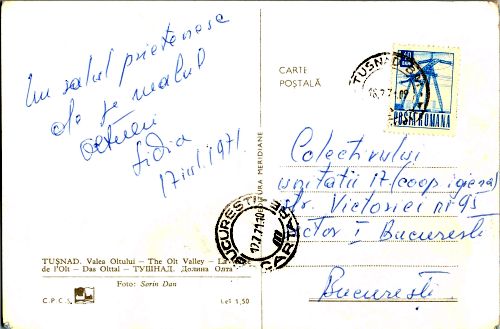 Un salut prietenesc
de pe malul
Oltului
Lidia
17 iul. 1971.
TUȘNAD. Valea Oltului — The Olt Valley — La
de l'Olt — Das Olttal — ТУШНАД. Долина Олта
Foto: Sorin Dan
C.P.C.S.
Lei 1,50
MERIDIANE
CARTE
POȘTALĂ
TUȘNAD
POSTA ROMANA
BUCUREȘTI
CARTARE
Colectivului
unitatii 17 (coop igiena)
str. Victoriei nr 95
sector I București
București